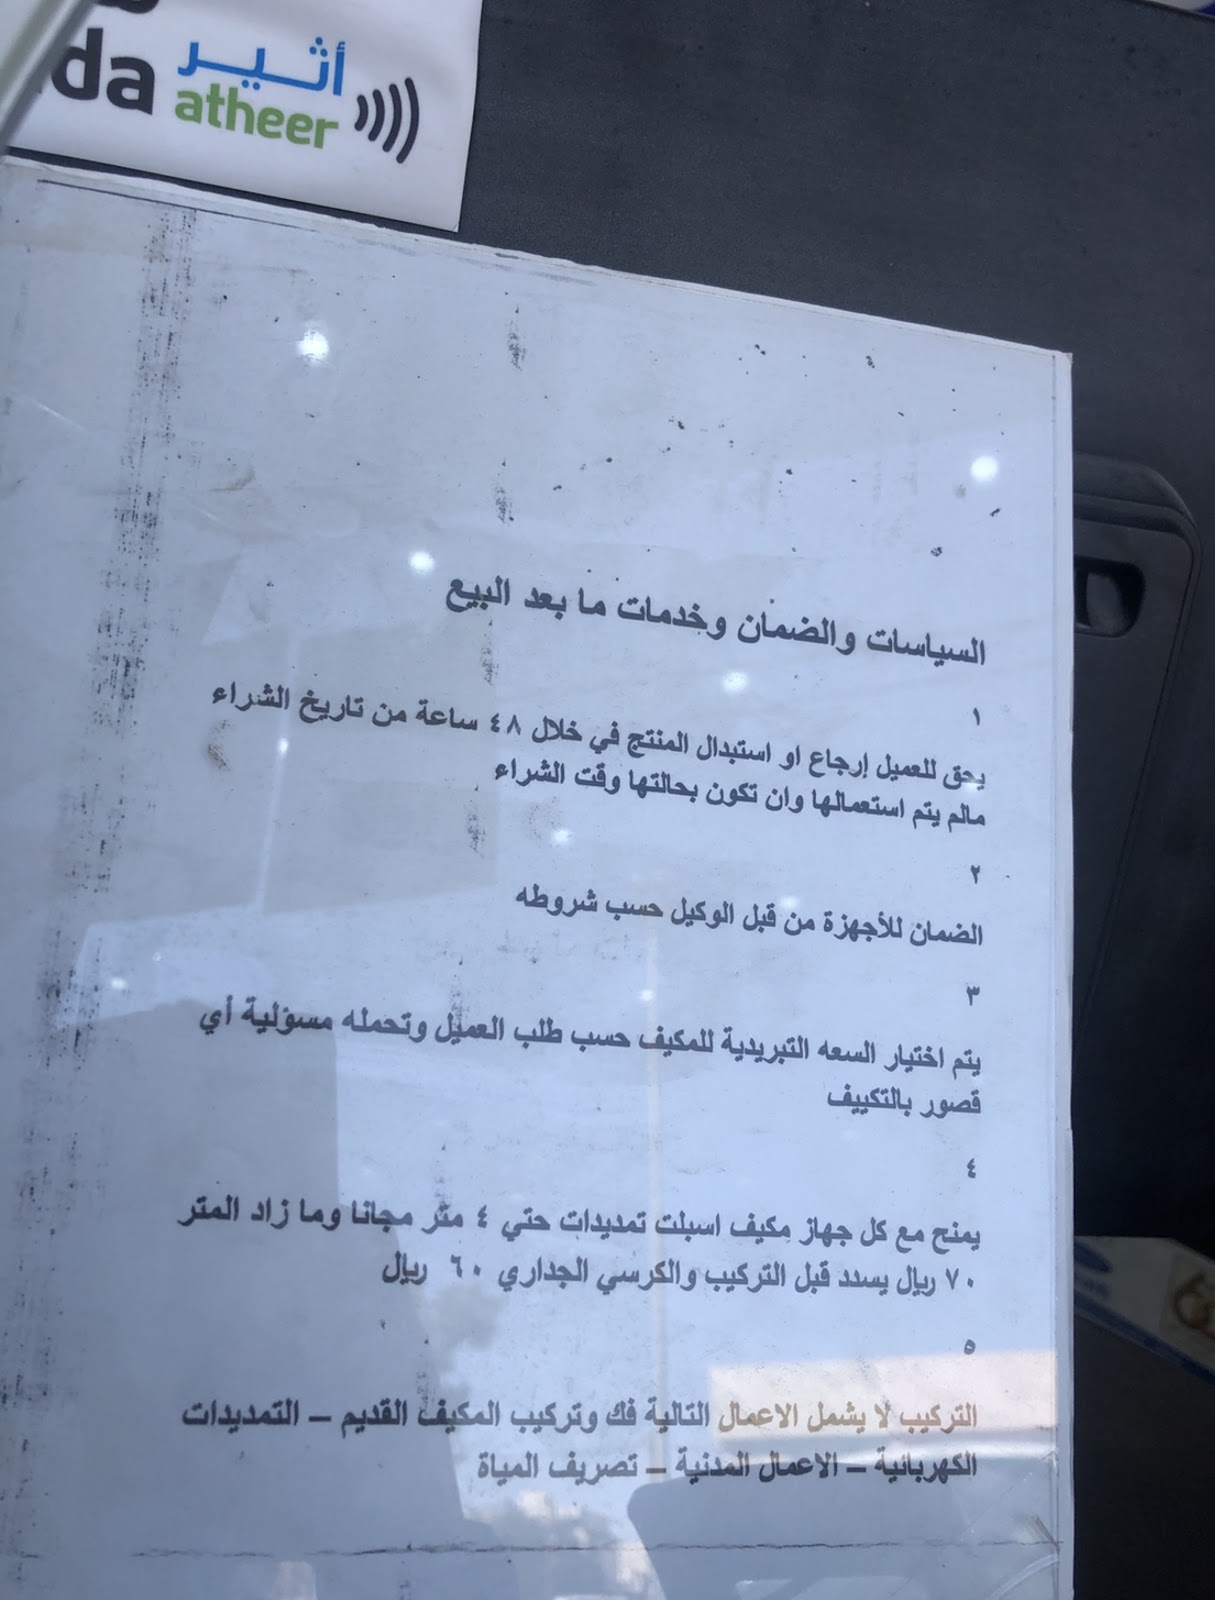 da
أثير
atheer
السياسات والضمان وخدمات ما بعد البيع
١
يحق للعميل إرجاع او استبدال المنتج في خلال ٤٨ ساعة من تاريخ الشراء
مالم يتم استعمالها وان تكون بحالتها وقت الشراء
٢
الضمان للأجهزة من قبل الوكيل حسب شروطه
٣
يتم اختيار السعه التبريدية للمكيف حسب طلب العميل وتحمله مسؤلية أي
قصور بالتكييف
٤
يمنح مع كل جهاز مكيف اسبلت تمديدات حتي ٤ متر مجانا وما زاد المتر
٧٠ ريال يسدد قبل التركيب والكرسي الجداري ٦٠ ريال
٥
التركيب لا يشمل الاعمال التالية فك وتركيب المكيف القديم – التمديدات
الكهربائية – الاعمال المدنية – تصريف المياة